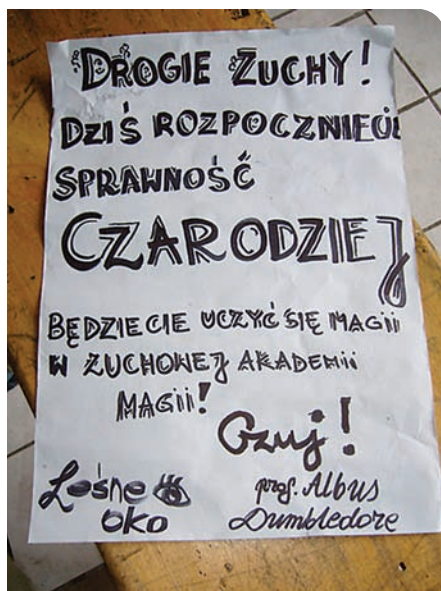 DROGIE ZUCHY!
DZIŚ ROZPOCZNIECIE
SPRAWNOŚĆ
CZARODZIEJ
BĘDZIECIE UCZYĆ SIĘ MAGII
W ZUCHOWEJ AKADEMII
MAGII!
Czuj!
Leśne
oko
prof. Albus
Dumbledore